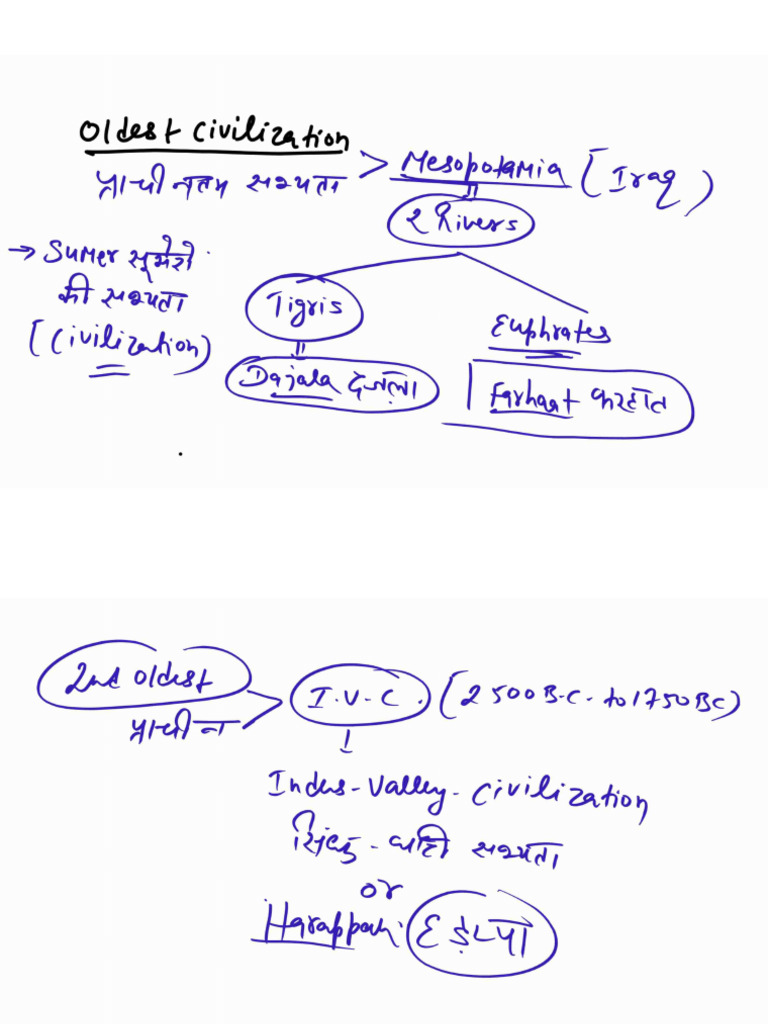 Oldest Civilization
प्राचीनतम सभ्यता > Mesopotamia [Iraq)
2 Rivers
→ Sumer सूमेरो
की सभ्यता
[Civilization)
Tigris
Euphrates
Dajala दजला
Farhaat फरहात
2nd oldest
प्राचीन
I.V.C. [2500 B.C. to 1750 BC)
Indus-Valley-Civilization
सिंधु-घाटी सभ्यता
or
Harappan हड़प्पा